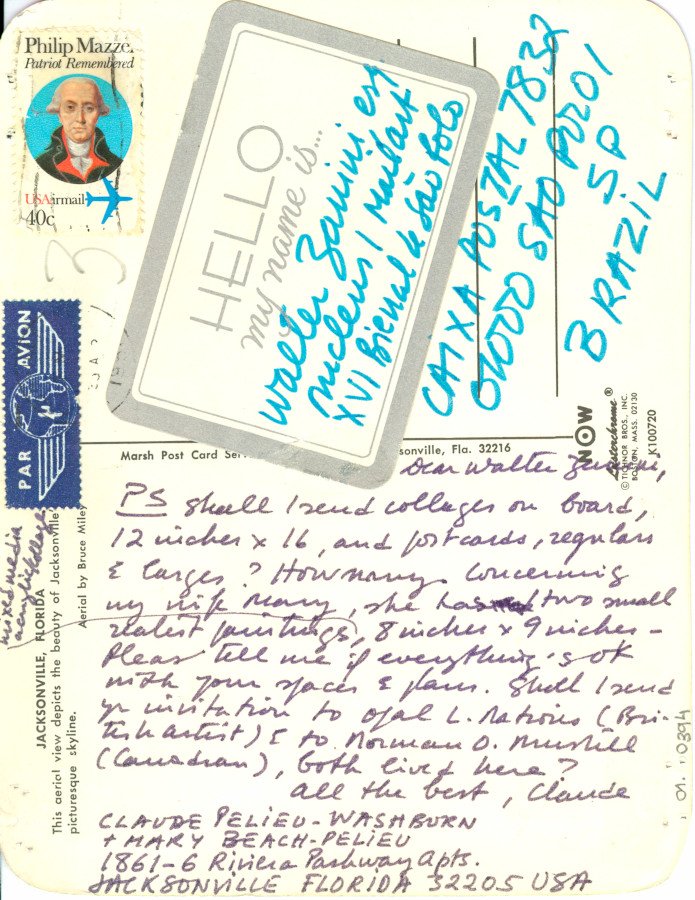 Philip Mazzei
Patriot Remembered
USAirmail
40c
3
PAR AVION
HELLO
my name is...
Walter Zanini esq
XVI Bienal de São Polo
CAIXA POSTAL 7832
01000 SAO POLO 1
SP
BRAZIL
Marsh Post Card Ser
sonville, Fla. 32216
NOW
Lusterchrome®
© TICHNOR BROS., INC.
BOSTON, MASS. 02130
K100720
Dear Walter Zanini,
PS Shall I send collages on board,
12 inches x 16, and postcards, regulars
& larges? How many. Concerning
my wife Mary, she has two small
realist paintings, 8 inches x 9 inches -
Please tell me if everything's OK
with your spaces & plans. Shall I send
yr invitation to Opal L. Nations (Bri-
tish artist) & to Norman O. Mustill
(Canadian), both lived here?
All the best, Claude
CLAUDE PELIEU-WASHBURN
+ MARY BEACH-PELIEU
1861-6 Riviera Parkway Apts.
JACKSONVILLE FLORIDA 32205 USA
mixed media
JACKSONVILLE, FLORIDA
This aerial view depicts the beauty of Jacksonville's
picturesque skyline.
Aerial by Bruce Miley
01.10394